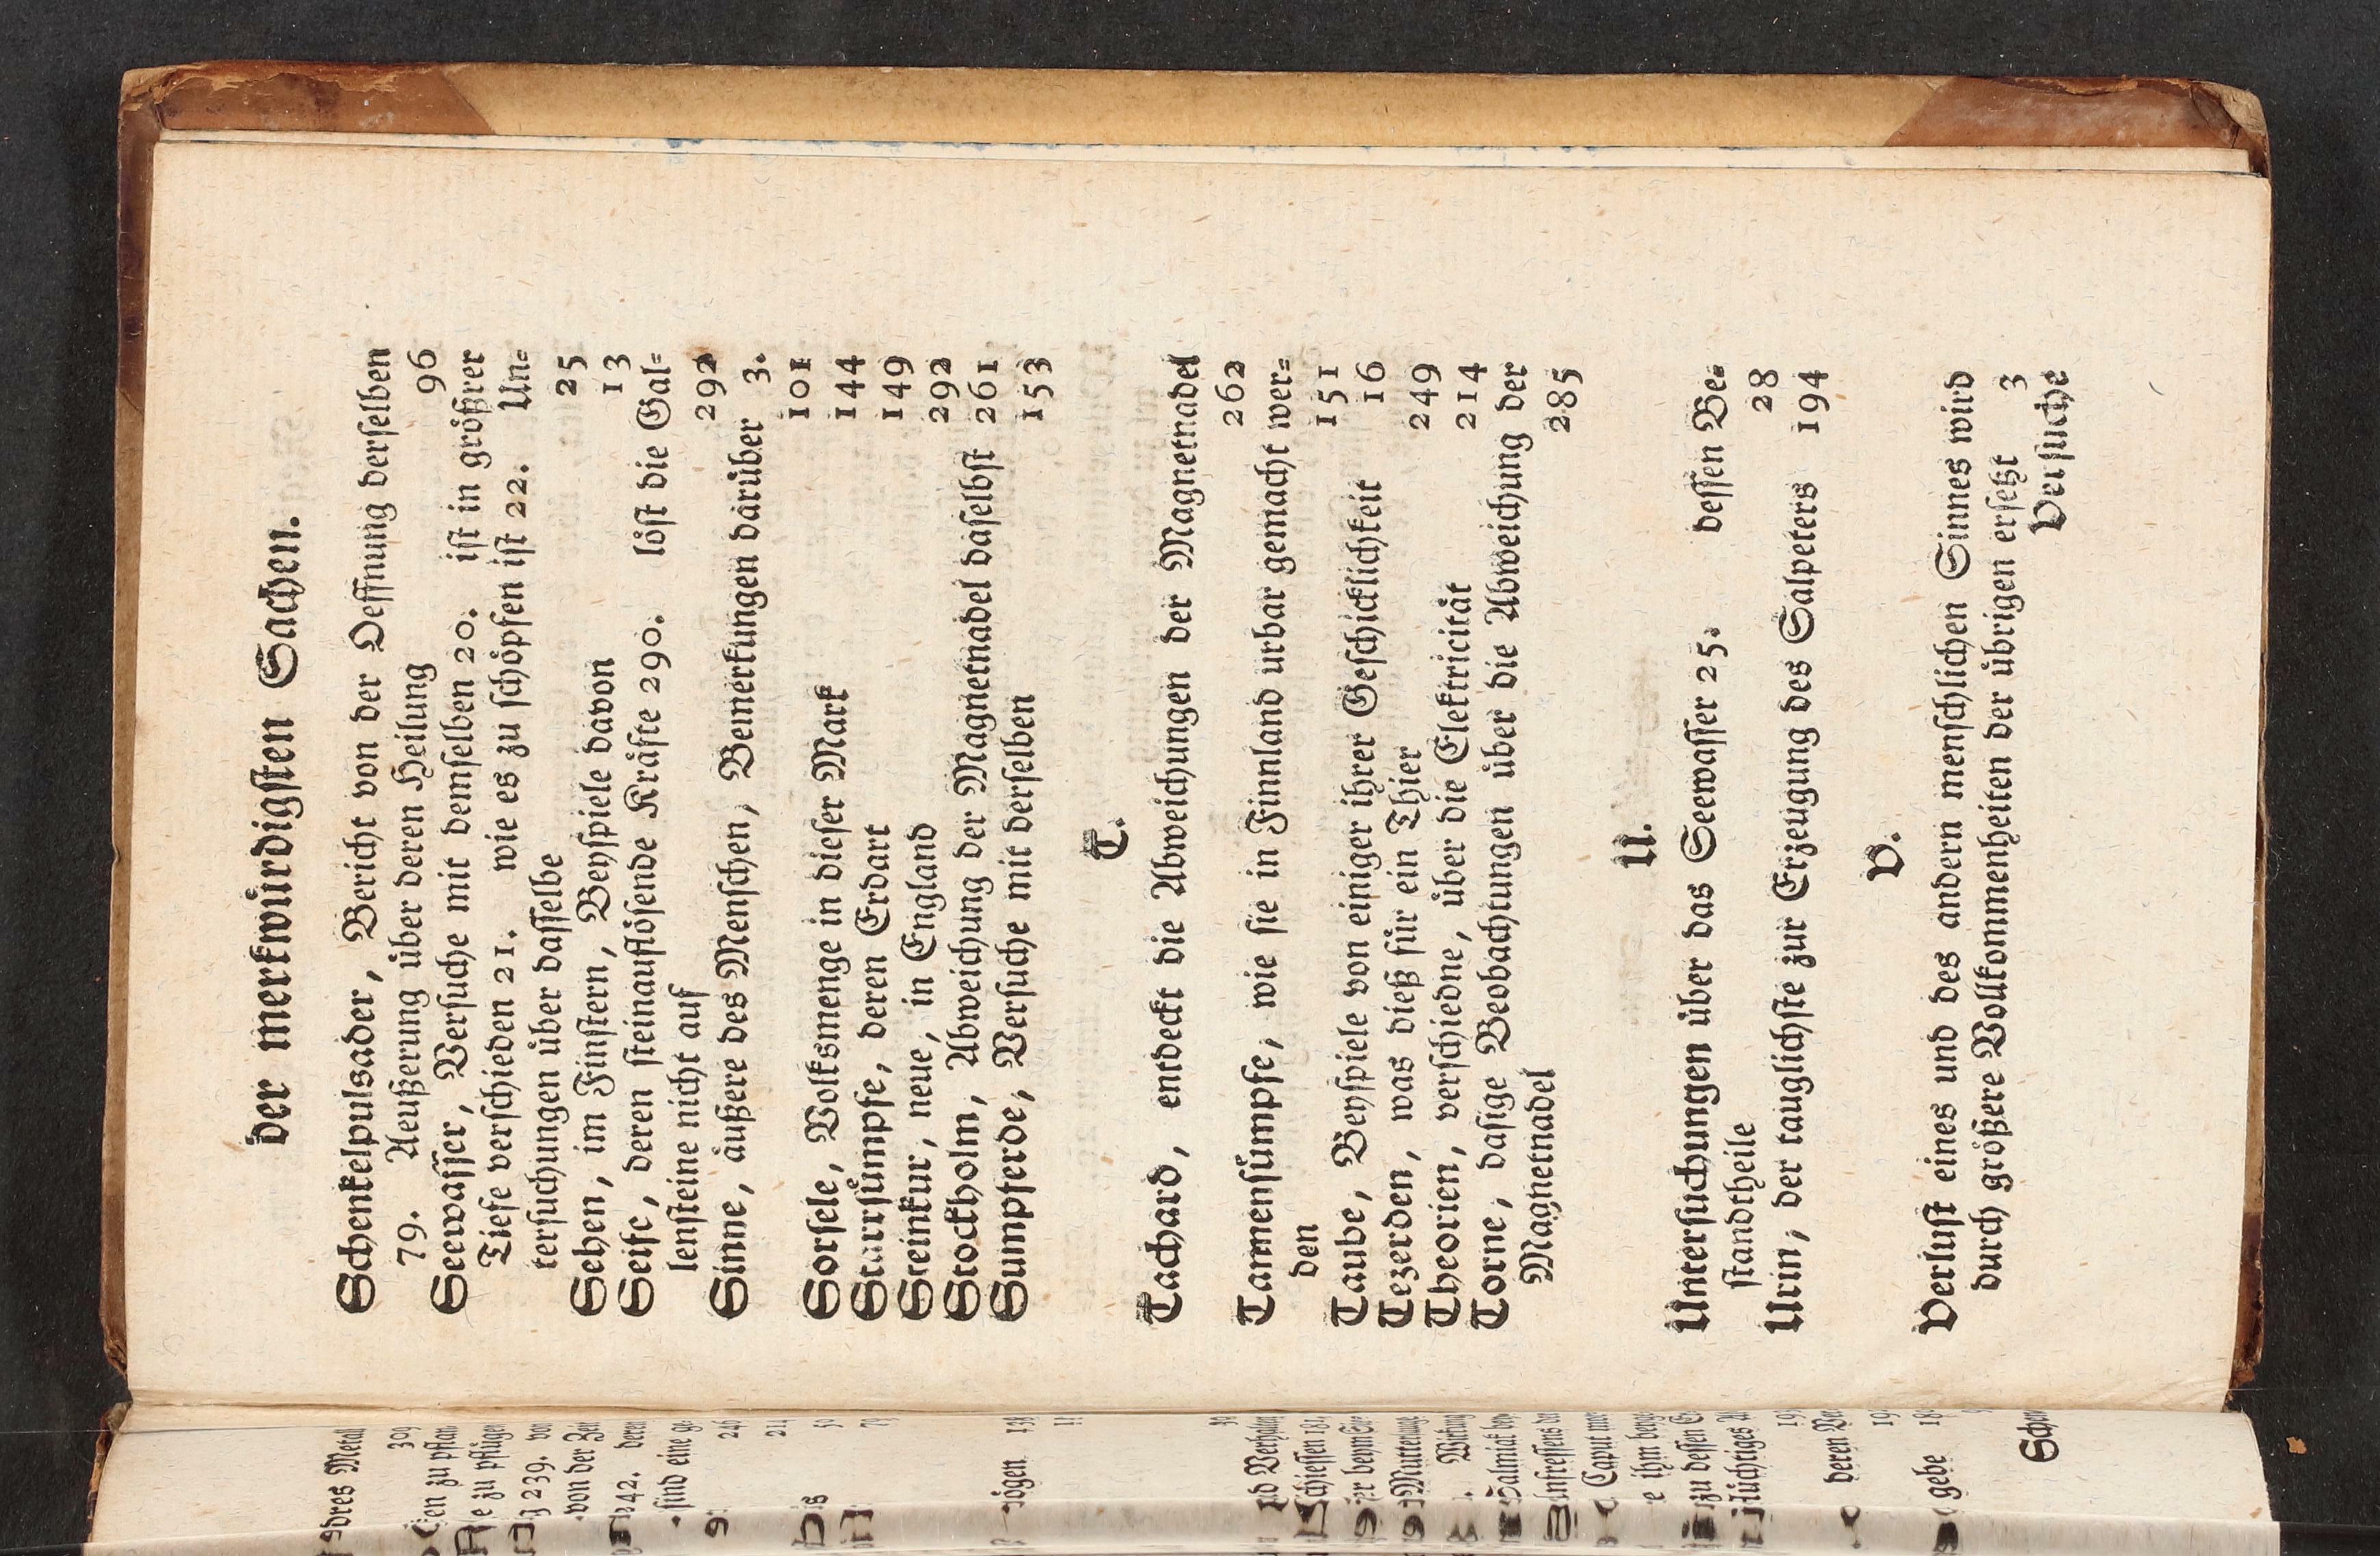 der merkwürdigsten Sachen.
Schenkelpulsader, Bericht von der Oeffnung derselben
79. Aeußerung über deren Heilung 96
Seewasser, Versuche mit demselben 20. ist in größrer
Tiefe verschieden 21. wie es zu schöpfen ist 22. Un=
tersuchungen über dasselbe 25
Sehen, im Finstern, Beyspiele davon 13
Seife, deren steinauflösende Kräfte 290. löst die Gal=
lensteine nicht auf 292
Sinne, äußere des Menschen, Bemerkungen darüber 3.
101
Sorsele, Volksmenge in dieser Mark 144
Starrsümpfe, deren Erdart 149
Steinkur, neue, in England 292
Stockholm, Abweichung der Magnetnadel daselbst 261
Sumpferde, Versuche mit derselben 153
T.
Tachard, entdeckt die Abweichungen der Magnetnadel
262
Tannensümpfe, wie sie in Finnland urbar gemacht wer=
den 151
Taube, Beyspiele von einiger ihrer Geschicklichkeit 16
Tezerden, was dieß für ein Thier 249
Theorien, verschiedne, über die Elektricität 214
Torne, dasige Beobachtungen über die Abweichung der
Magnetnadel 285
U.
Untersuchungen über das Seewasser 25. dessen Be=
standtheile 28
Urin, der tauglichste zur Erzeugung des Salpeters 194
V.
Verlust eines und des andern menschlichen Sinnes wird
durch größere Vollkommenheiten der übrigen ersetzt 3
Versuche
dres Metall
309
en zu pflan
e zu pflügen
239. vo
von der Zeit
42. deren
sind eine ge
246
214
138
nd Verhalten
Schiessen
Mutterlauge
Wirkung
Salmiak bey
Caput mor
e ihm
zu dessen
flüchtiges
deren
gebe